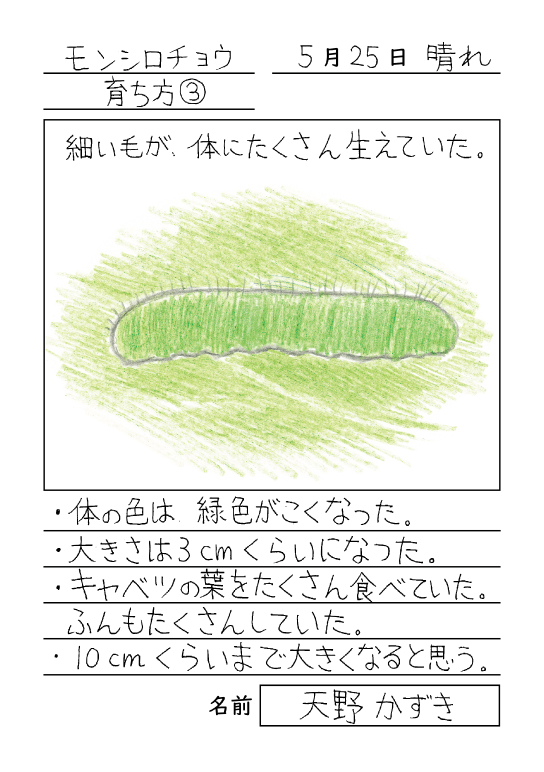 モンシロチョウ 5月25日 晴れ
育ち方③
細い毛が、体にたくさん生えていた。
・体の色は、緑色がこくなった。
・大きさは3cmくらいになった。
・キャベツの葉をたくさん食べていた。
ふんもたくさんしていた。
・10cmくらいまで大きくなると思う。
名前 天野 かずき